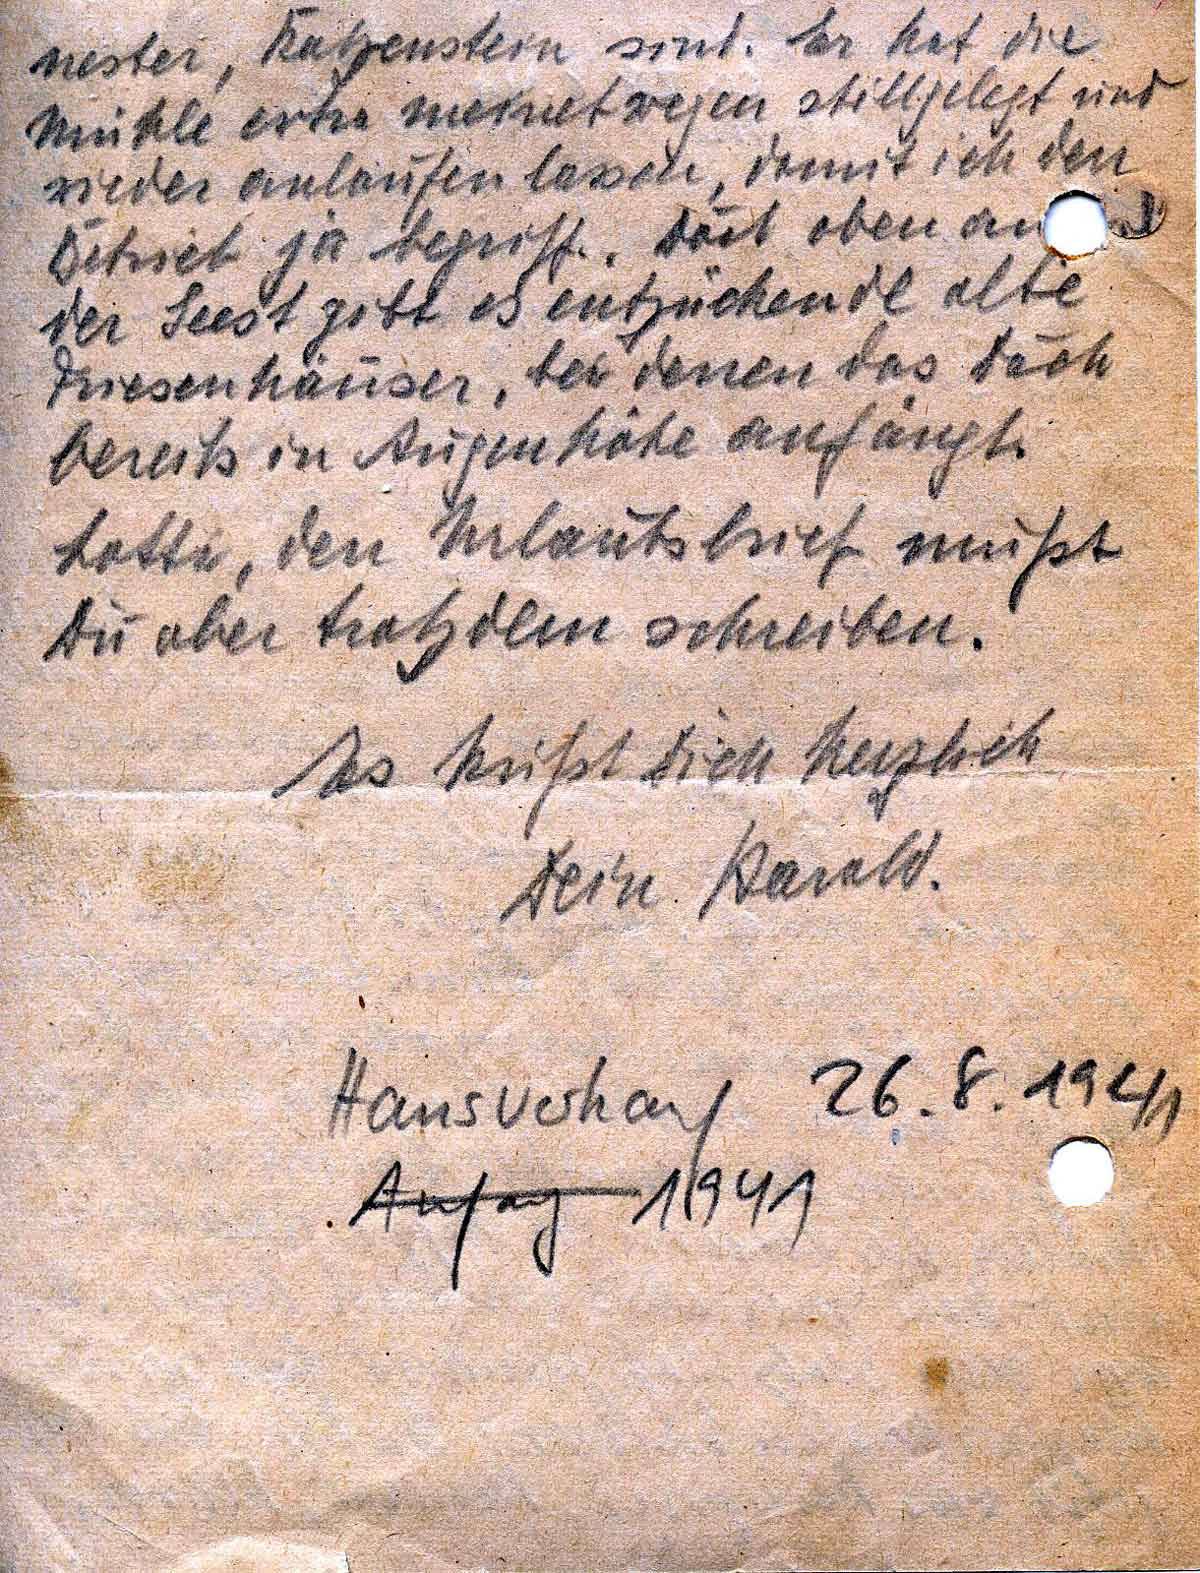 nester, Katzenstein sind. Er hat die
Mühle extra meinetwegen stillgelegt und
wieder anlaufen lassen, damit ich den
Betrieb ja begriff. Dort oben an
der Seest gibt es entzückende alte
Friesenhäuser, bei denen das Dach
bereits in Augenhöhe anfängt.
Lotti, den Urlaubsbrief mußt
Du aber trotzdem schreiben.
Es küßt Dich herzlich
Dein Harald.
Hausverkauf 26.8.1941
Anfang 1941